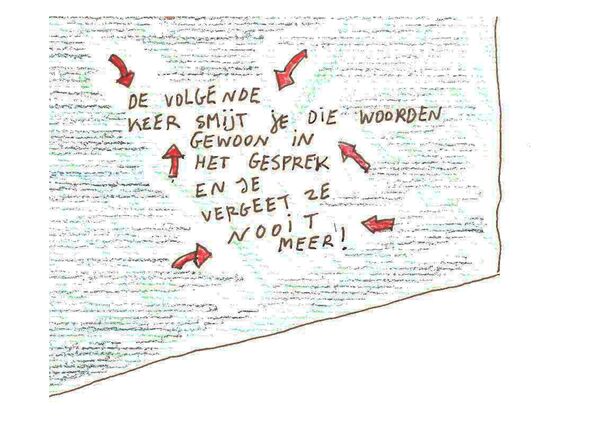 DE VOLGENDE
KEER SMIJT JE DIE WOORDEN
GEWOON IN
HET GESPREK
EN JE
VERGEET ZE
NOOIT
MEER!